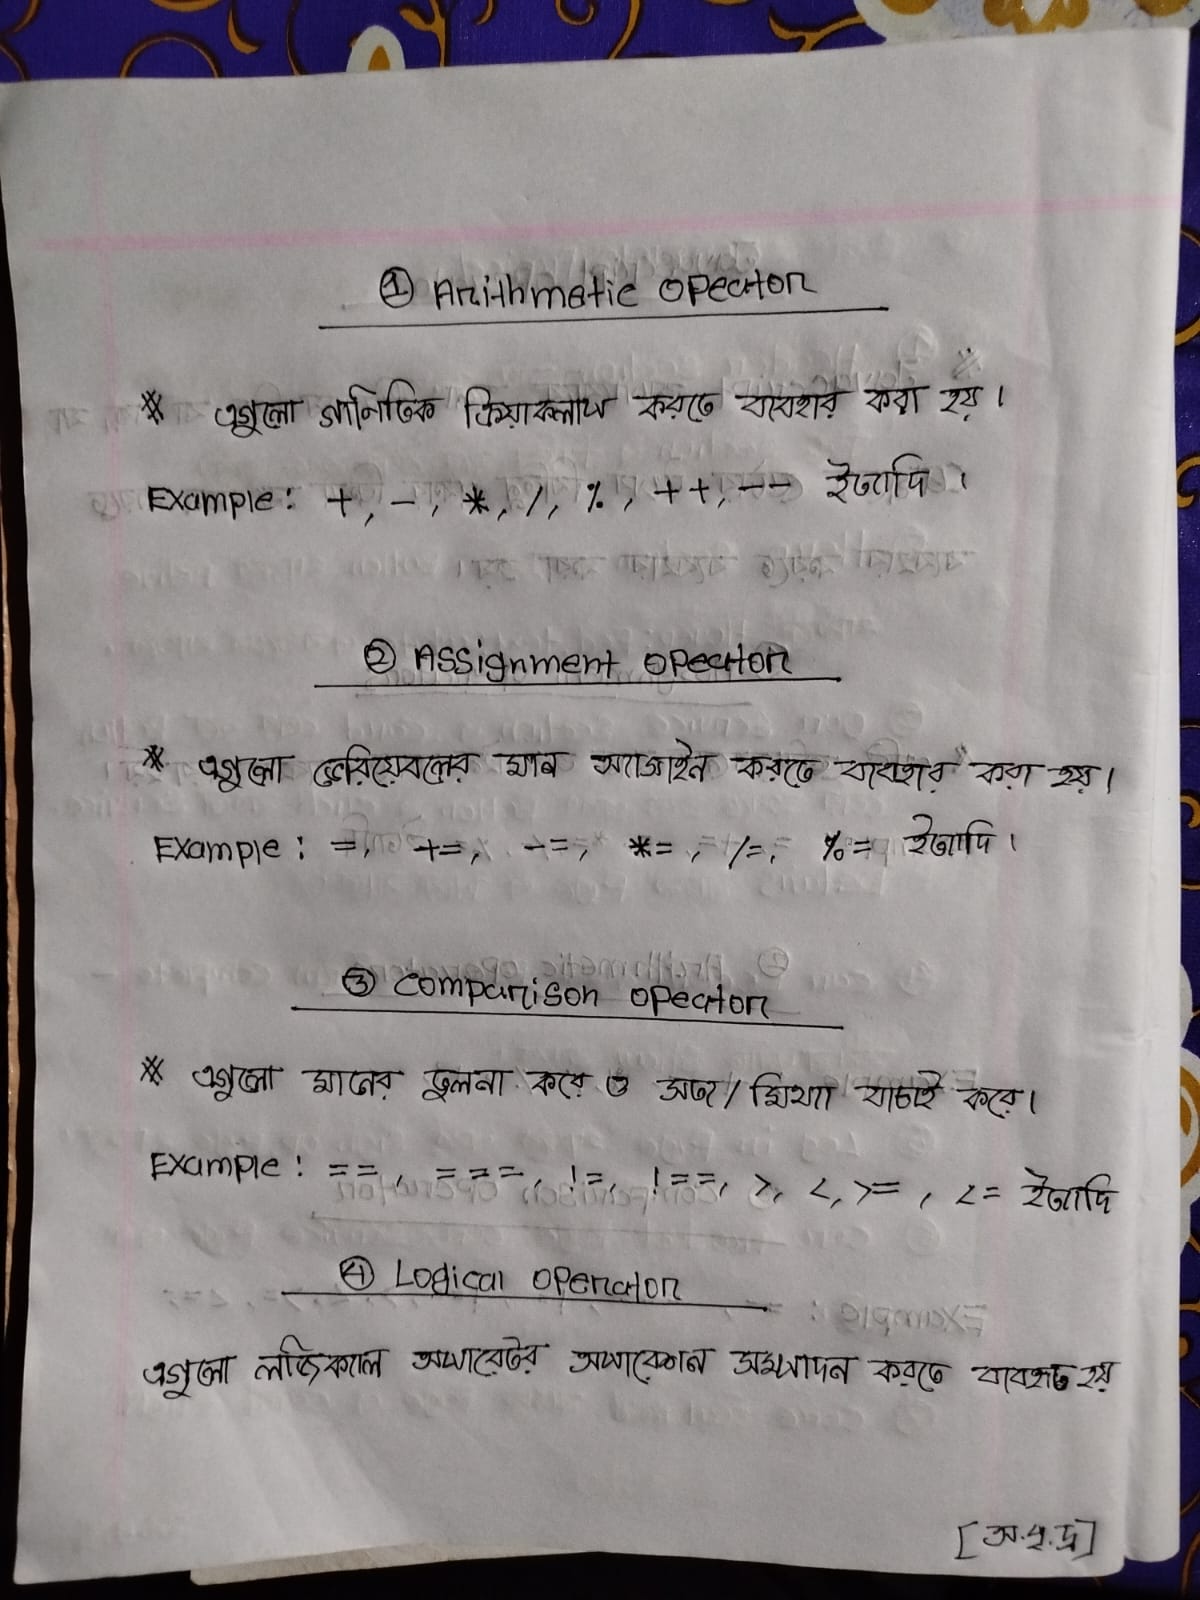 ① Arithmetic opeator
* এগুলো গানিতিক ক্রিয়াকলাপ করতে ব্যবহার করা হয়।
Example: +, -, *, /, %, ++, -- ইত্যাদি।
② Assignment opeator
* এগুলো ভেরিয়েবলের মান অ্যাসাইন করতে ব্যবহার করা হয়।
Example: =, +=, -=, *=, /=, %= ইত্যাদি।
③ Comparison opeator
* এগুলো মানের তুলনা করে ও সত্য/মিথ্যা যাচাই করে।
Example: ==, ===, !=, !==, >, <, >=, <= ইত্যাদি
④ Logical operator
এগুলো লজিক্যাল অপারেটর অপারেশন সম্পাদন করতে ব্যবহৃত হয়
[অ.পৃ.দ্র]